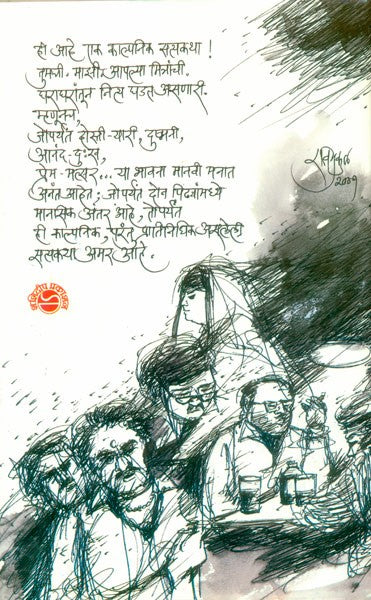 ही आहे एक काल्पनिक सत्यकथा!
तुमची-माझी, आपल्या मित्रांची.
घराघरांतून नित्य घडत असणारी.
म्हणूनच,
जोपर्यंत दोस्ती-यारी, दुष्मनी,
आनंद-दुःख,
प्रेम-मत्सर...या भावना मानवी मनात
अनंत आहेत; जोपर्यंत दोन पिढ्यांमध्ये
मानसिक अंतर आहे, तोपर्यंत
ही काल्पनिक, परंतु प्रातिनिधिक असलेली
सत्यकथा अमर आहे.
रविमुकुल
२००१